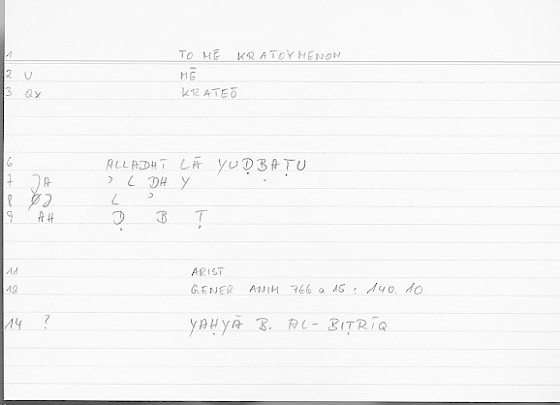 1 TO MĒ KRATOYMENON
2 U MĒ
3 Qx KRATEŌ
6 ALLADHĪ LĀ YUḌBAṬU
7 JA ʾ L DH Y
8 L ʾ
9 AH Ḍ B Ṭ
11 ARIST
12 GENER ANIM 766 a 15 : 140.10
14 ? YAḤYĀ B. AL-BIṬRĪQ